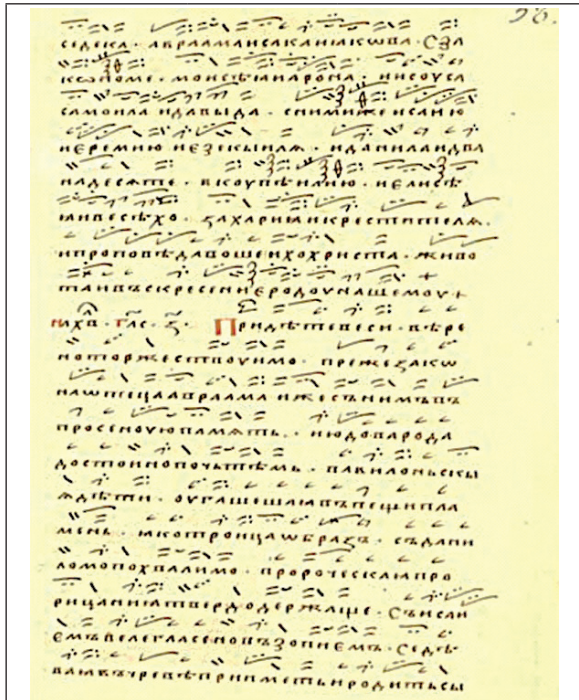 96.
седека · авраама исакаиꙗкѡва · Сз҃л
кѡноме · моисѣꙗиарона · иисоуса
самоила идавыда · снимижеисаию
иꙗремию иезекыилѧ · иданилаидва
надесѧте · вкоупѣилию · иелисѣ
ꙗивесѣхо · захариꙗикреститителѧ ·
ипроповѣдавошеихохриста · живо
таивъскресениеродоунашемоу +
на хв҃ · гл҃с · ѕ · Придѣтевеси · вѣре
ноторжествоуимо · прежезакѡ
наѡтецаавраама ижесънимъвъ
просеноуюпамѧть · июдоварода
достоинопочьтѣмь · вавилоньскы
ꙗдѣти · оугашешаꙗвъпещипла
мень · ꙗкотроицаѡбразъ · съдани
ломопохвалимо · пророческаꙗпро
рицаниꙗтвердодержаще · съисаи
емъвелегласеновъзопиемъ · седѣ
ваꙗвъчревѣприиметьиродитьсы